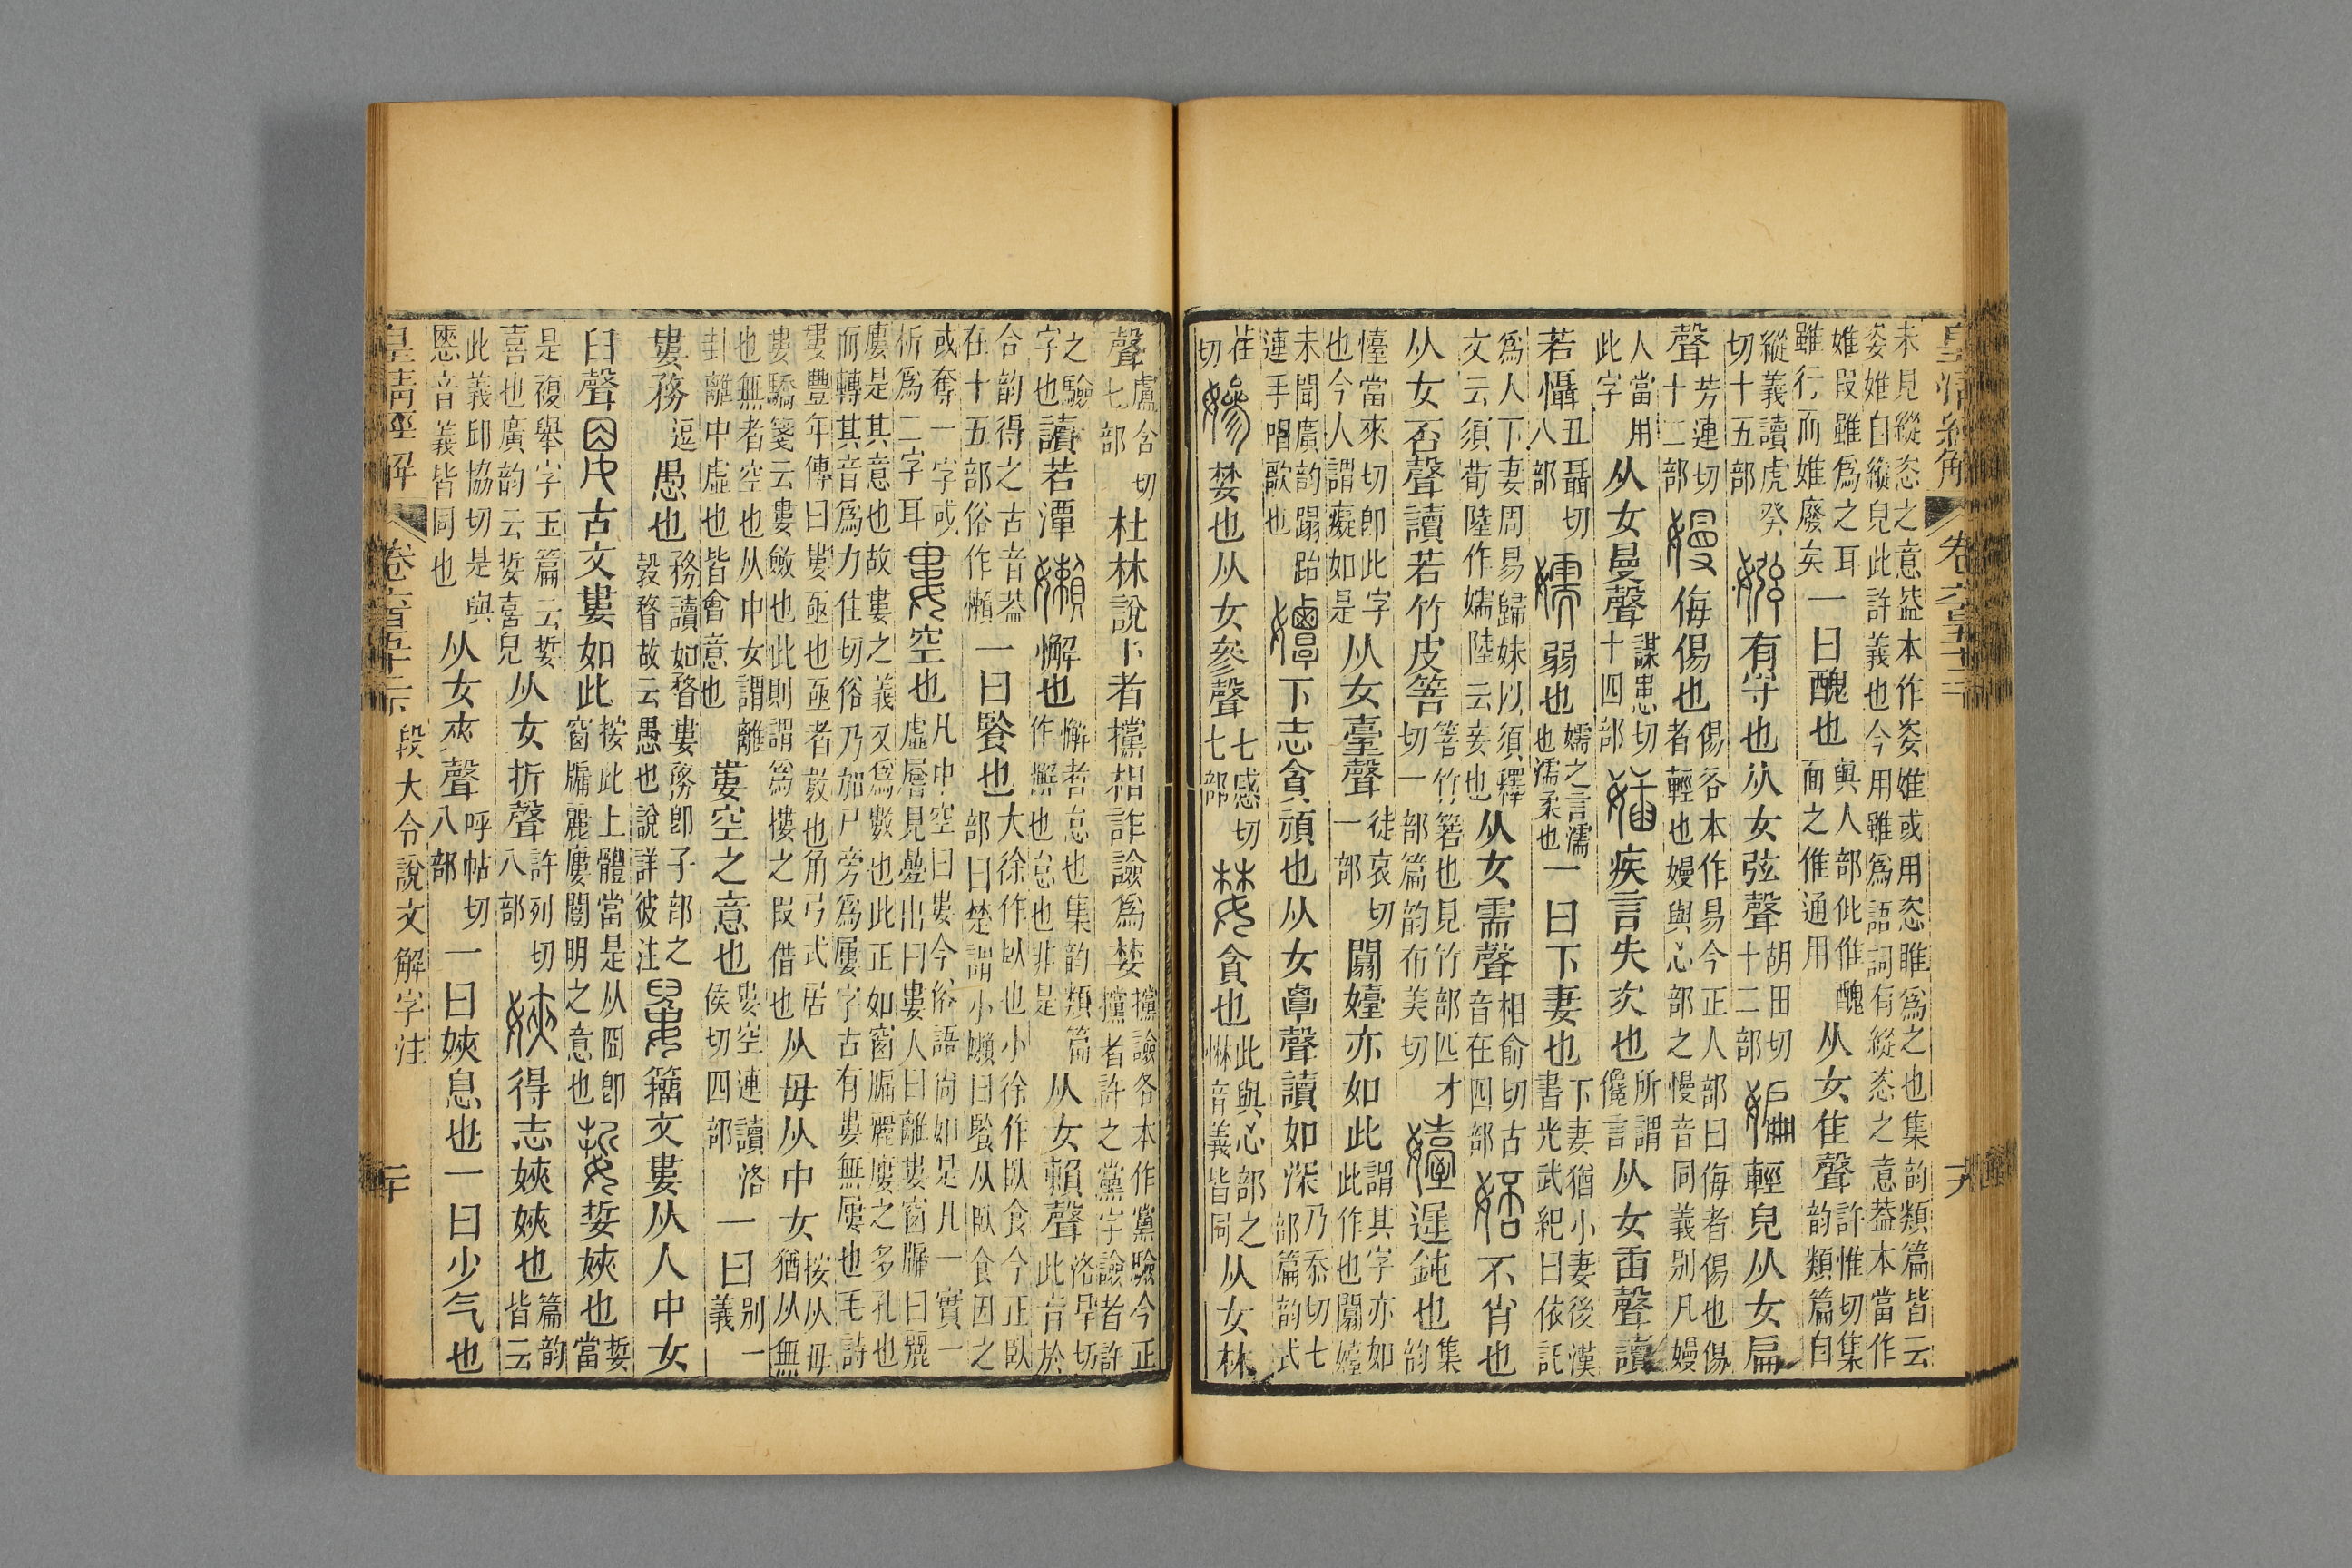 未見縱恣之意葢本作姿婎或用恣睢爲之也集韵類篇皆云
姿婎自縱皃此許義也今用雖爲語詞有縱恣之意葢本當作
婎叚雖爲之耳
雖行而婎廢矣
一曰醜也
與人部仳倠醜
面之倠通用
从女隹聲
許惟切集
韵類篇自
縱義讀虎癸
切十五部
有守也从女弦聲
胡田切
十二部
輕皃从女扁
聲
芳連切
十二部
侮傷也
傷各本作易今正人部曰侮者傷也傷
者輕也嫚與心部之慢音同義别凡嫚
人當用
此字
从女曼聲
謀患切
十四部
疾言失次也
所謂
儳言
从女臿聲讀
若懾
丑聶切
八部
弱也
嬬之言濡
也濡柔也
一曰下妻也
下妻猶小妻後漢
書光武紀曰依託
爲人下妻周易歸妹以須釋
文云須荀陸作嬬陸云妾也
从女需聲
相俞切古
音在四部
不肖也
从女否聲讀若竹皮箁
箁竹箬也見竹部匹才
切一部篇韵布美切
遲鈍也
集
韵
懛當來切卽此字
也今人謂癡如是
从女臺聲
徒哀切
一部
闟嬯亦如此
謂其字亦如
此作也闟嬯
未聞廣韵蹋跆
連手唱歌也
下志貪頑也从女覃聲讀如深
乃忝切七
部篇韵式
荏
切
婪也从女參聲
七感切
七部
貪也
此與心部之
惏音義皆同
从女林
聲
盧含切
七部
杜林說卜者攩相詐譣爲婪
攩譣各本作黨驗今正
攩者許之黨字譣者許
之驗
字也
讀若潭
懈也
懈者怠也集韵類篇
作㦎也怠也非是
从女賴聲
洛旱切
此音於
合韵得之古音葢
在十五部俗作懶
一曰䬶也
大徐作臥也小徐作臥食今正臥
部曰楚謂小嬾曰䬶从臥食因之
或奪一字或
析爲二字耳
空也
凡中空曰婁今俗語尙如是凡一實一
虛層見疊出曰婁人曰離婁窗牖曰麗
廔是其意也故婁之義又爲數也此正如窗牖麗廔之多孔也
而轉其音爲力住切俗乃加尸旁爲屢字古有婁無屢也毛詩
婁豐年傳曰婁亟也亟者數也角弓式居
婁驕箋云婁斂也此則謂爲摟之叚借也
从毋从中女
按从毋
猶从無
也無者空也从中女謂離
卦離中虛也皆會意也
婁空之意也
婁空連讀洛
侯切四部
一曰
别一
義
婁務
逗
愚也
務讀如瞀婁務卽子部之
㝅瞀故云愚也說詳彼注
籒文婁从人中女
臼聲
古文婁如此
按此上體當是从囧卽
窗牖麗廔闓明之意也
娎㛍也
娎
當
是複舉字玉篇云娎
喜也廣韵云娎喜皃
从女折聲
許列切
八部
得志㛍㛍也
篇韵
皆云
此義邱協切是與
㥦音義皆同也
从女夾聲
呼帖切
八部
一曰㛍息也一曰少气也
皇淸經解
段大令說文解字注
二十